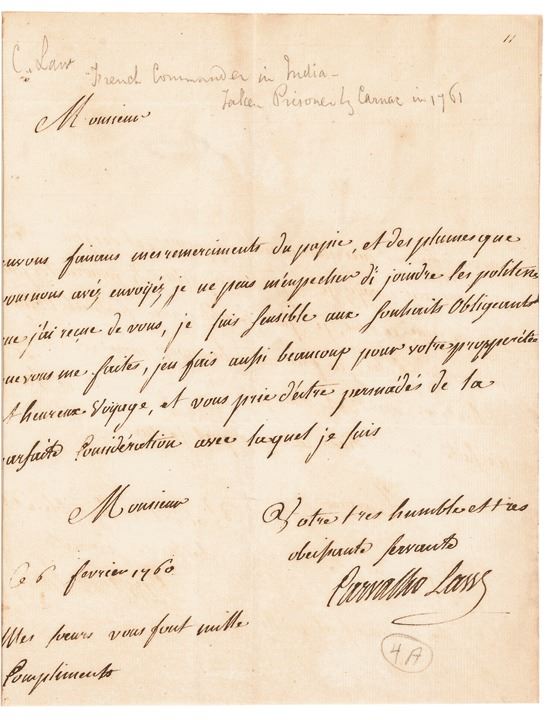 11
C. Law
French Commander in India -
Taken Prisoner by Carnac in 1761
Monsieur
vous faisans mes remerciments du papie, et des plumes que
vous nous avéz envoyéz je ne peus m'enpecher d'i joindre les politesses
que j'ai reçue de vous, je suis sensible aux souhaits obligeants
que vous me faites, j'en fais aussi beaucoup pour votre propperité
et heureux voyage, et vous prie d'éttre persuadés de la
parfaite Considération avec laquel je suis
Monsieur
Votre tres humble et tres
obeissante servante
Ce 6 fevrier 1760
Carvalho Laws
Mes sœurs vous font mille
Compliments
4A